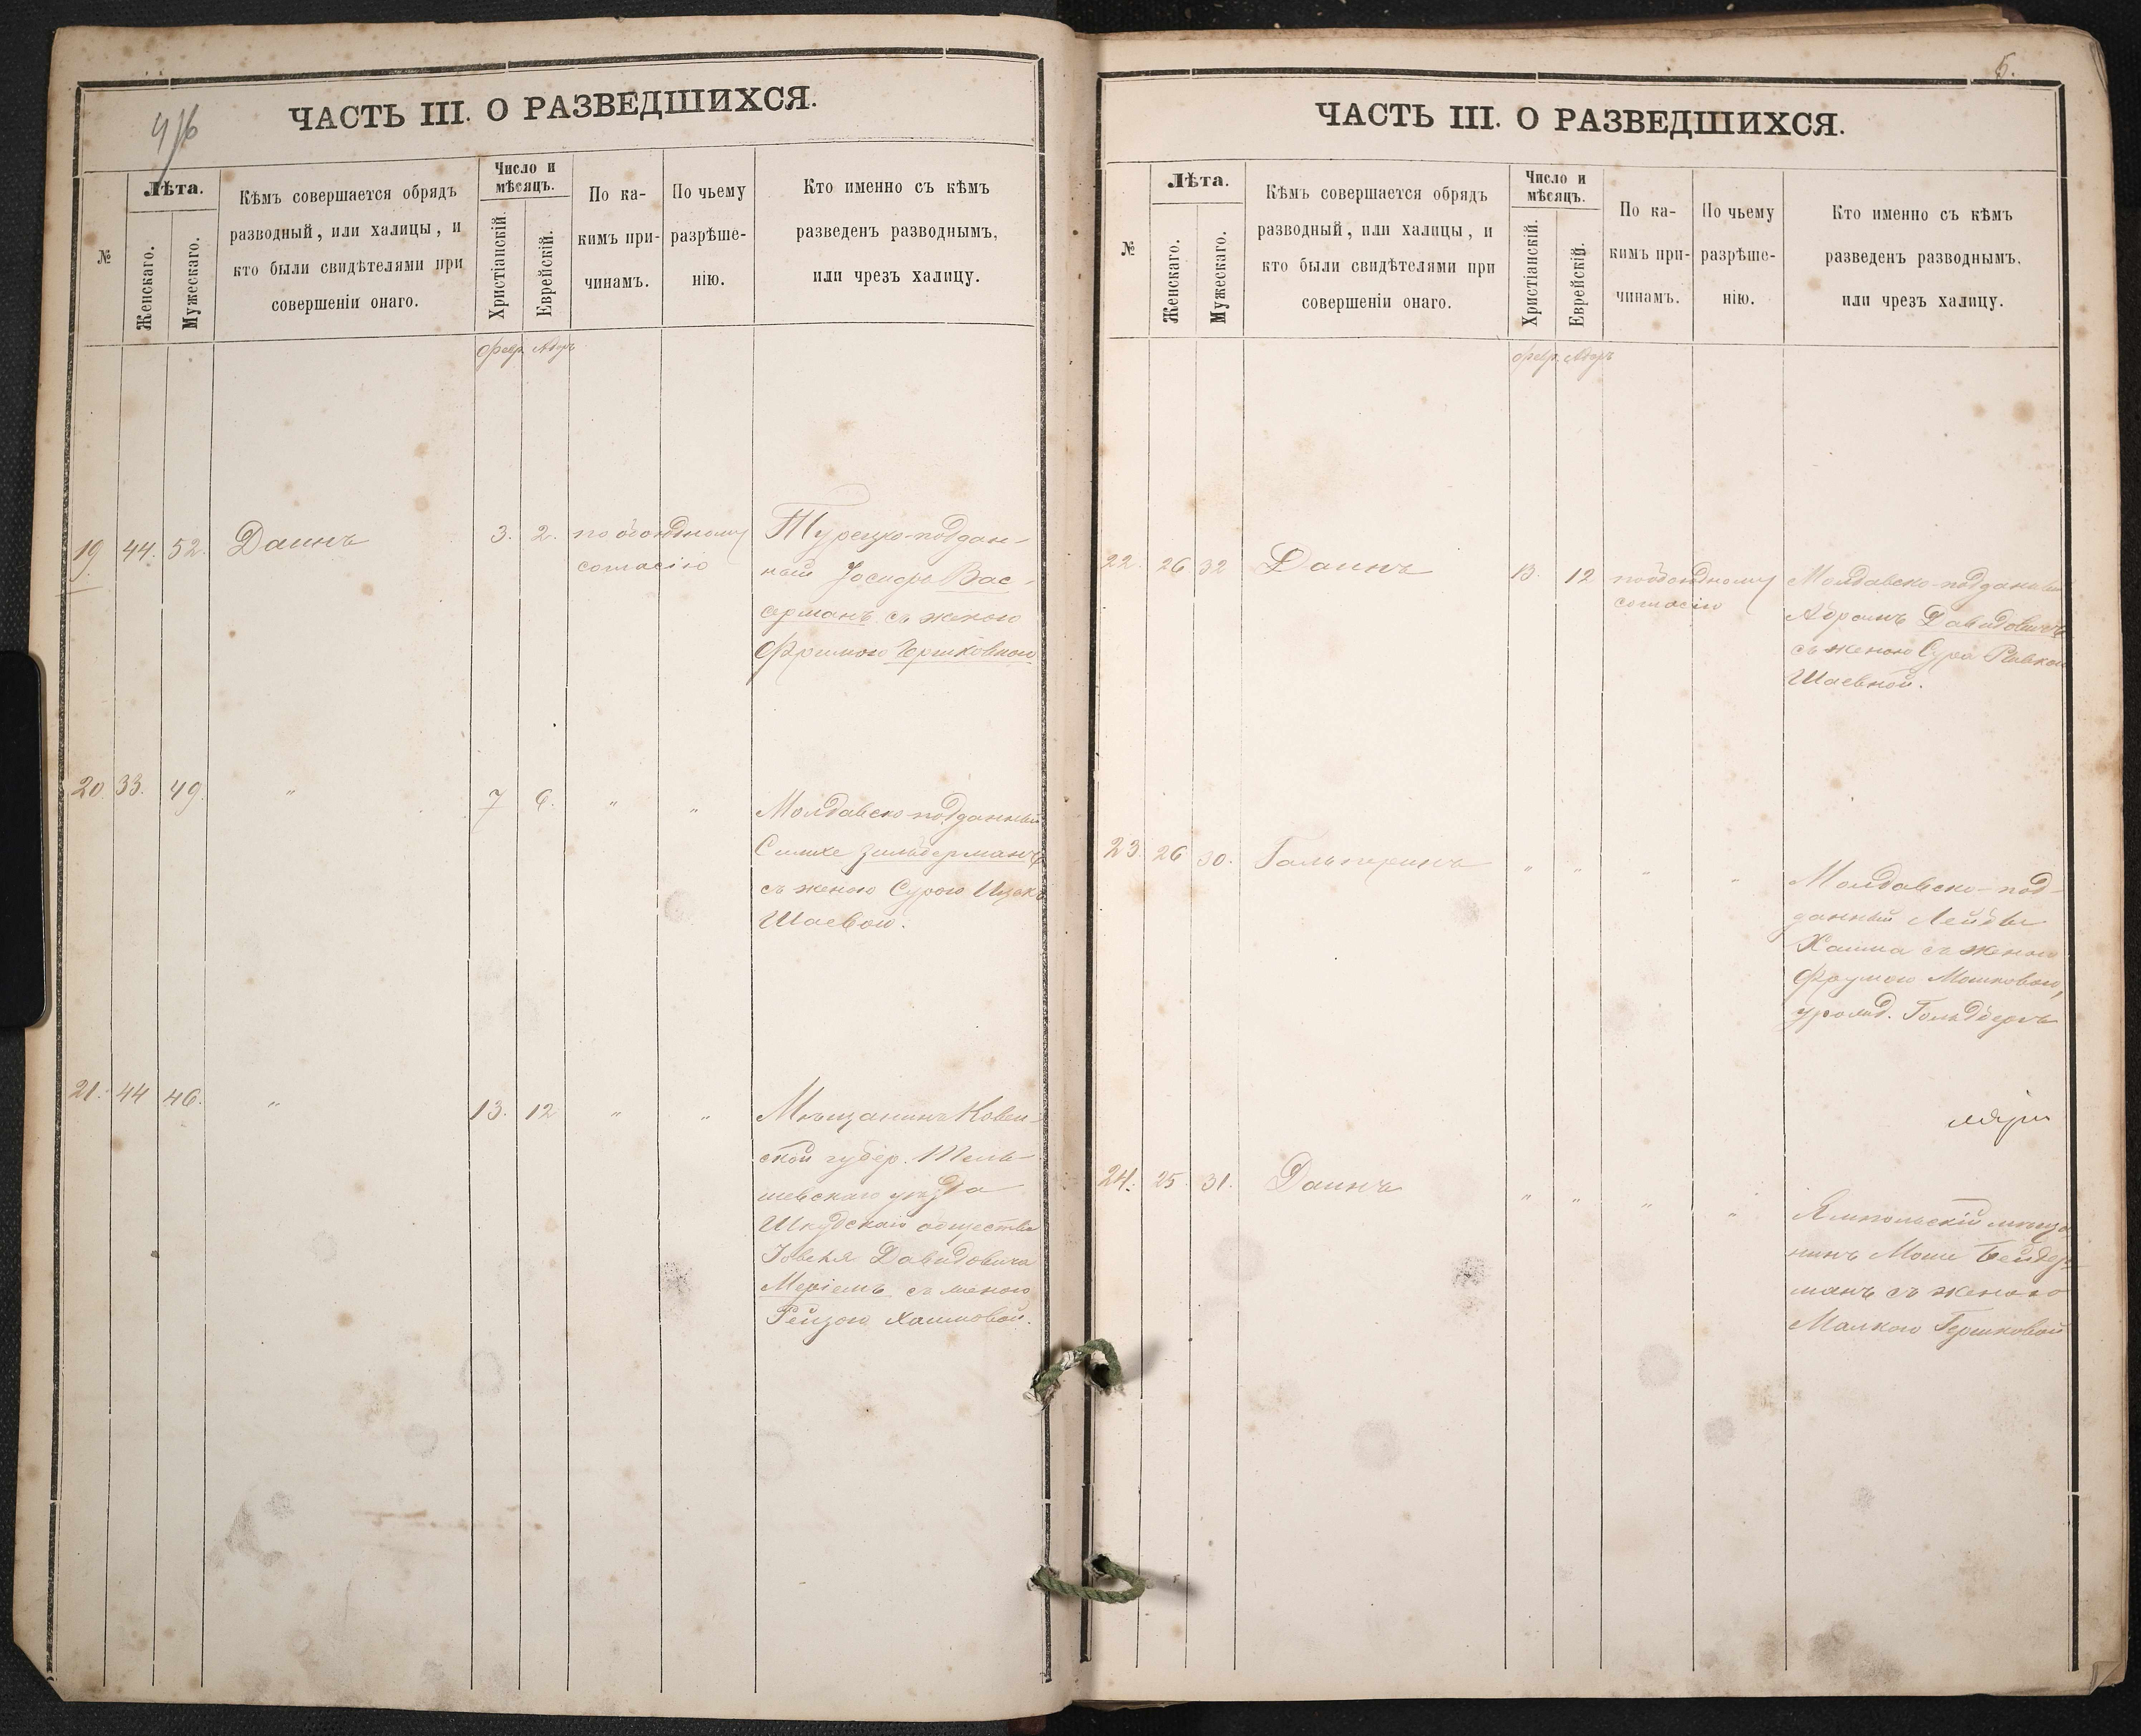 ЧАСТЬ III. О РАЗВЕДШИХСЯ.
№
Лѣта.
Женскаго.
Мужескаго.
Кѣмъ совершается обрядъ
разводный, или халицы, и
кто были свидѣтелями при
совершеніи онаго.
Число и
мѣсяцъ.
Христіанскій.
Еврейскій.
По ка-
кимъ при-
чинамъ.
По чьему
разрѣше-
нію.
Кто именно съ кѣмъ
разведенъ разводнымъ,
или чрезъ халицу.
февр. Адръ
19 44. 52. Даинъ 3. 2. по обоюдному
согласію
Турецко-поддан-
ный Іосифъ Вас-
серманъ съ женою
Фримою Гершковною
20 33. 49. " 7 6. " "
Молдавско-подданный
Симхе Зильберманъ
съ женою Сурою Ицко
Шаевою.
21. 44 46. " 13. 12 " "
Мѣщанинъ Ковен-
ской губер. Тель-
шевскаго уѣзда
Шкудскаго общества
Давидовича
Меріемъ съ женою
Рейзою Хаимовой.
5.
ЧАСТЬ III. О РАЗВЕДШИХСЯ.
№
Лѣта.
Женскаго.
Мужескаго.
Кѣмъ совершается обрядъ
разводный, или халицы, и
кто были свидѣтелями при
совершеніи онаго.
Число и
мѣсяцъ.
Христіанскій.
Еврейскій.
По ка-
кимъ при-
чинамъ.
По чьему
разрѣше-
нію.
Кто именно съ кѣмъ
разведенъ разводнымъ,
или чрезъ халицу.
февр. Адръ
22. 26 32 Даинъ 13. 12 по обоюдному
согласію
Молдавско-подданный
Абрамъ Давидовичъ
съ женою Сура Ривкою
Шаевной.
23. 26 30. Гальперинъ " " " "
Молдавско-под-
данный Лейбы
Хаима съ женою
Фрумою Мошковою,
урожд. Гольдбергъ
24. 25. 31. Даинъ " " " "
Ямпольскій мѣща-
нинъ Моше Бейдер-
манъ съ женою
Малкою Гершковой